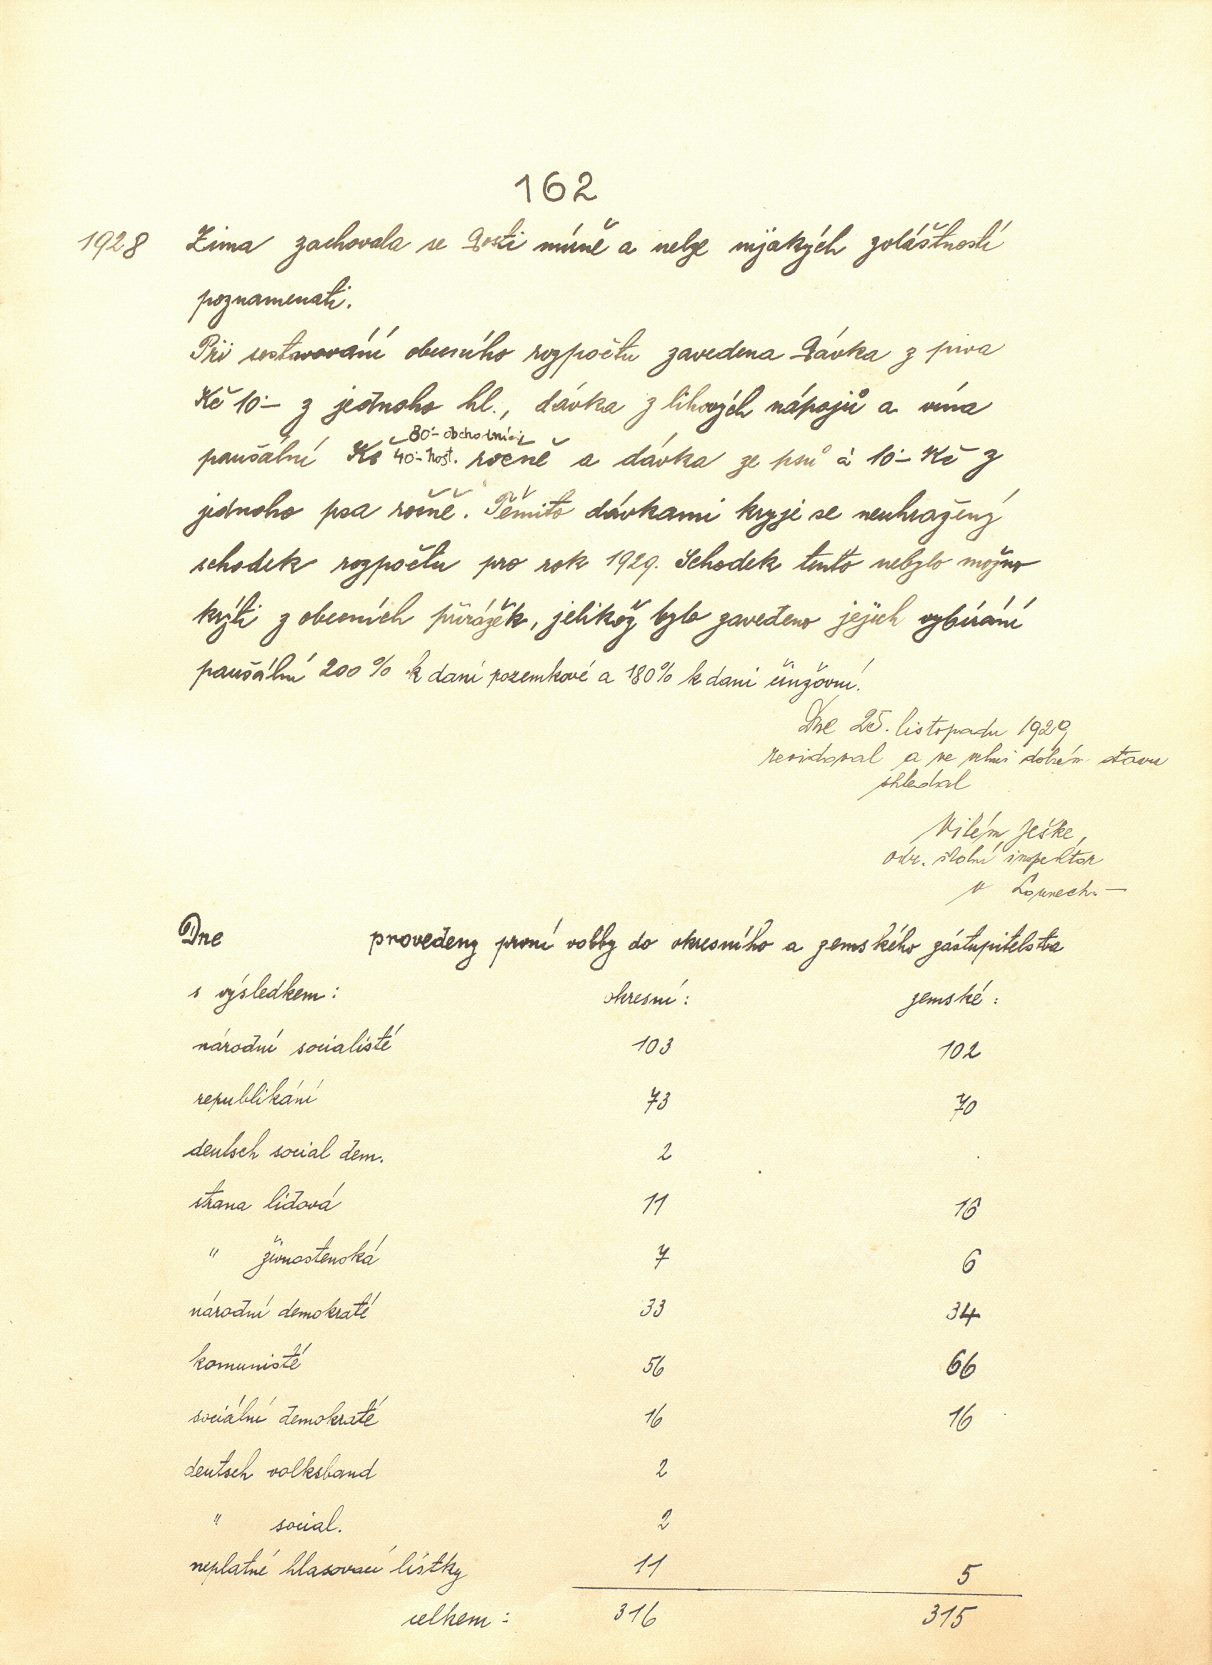 162
1928 Zima zachovala se dosti mírně a nelze nijakých zvláštností
poznamenati.
Při sestavování obecního rozpočtu zavedena dávka z piva
Kč 10·- z jednoho hl., dávka z lihových nápojů a vína
80·- obchodníci
paušální Kč 40·- host. ročně a dávka ze psů à 10·- Kč z
jednoho psa ročně. Těmito dávkami kryje se neuhražený
schodek rozpočtu pro rok 1929. Schodek tento nebylo možno
krýti z obecních přirážek, jelikož bylo zavedeno jejich vybírání
paušální 200% k dani pozemkové a 180% k dani činžovní.
Dne 25. listopadu 1929
revidoval a ve velmi dobrém stavu
shledal
Vilém Ješke,
okr. školní inspektor
v Lounech.-
Dne provedeny první volby do okresního a zemského zástupitelstva
s výsledkem: okresní: zemské:
národní socialisté 103 102
republikáni 73 70
deutsch social dem. 2
strana lidová 11 16
" živnostenská 7 6
národní demokraté 33 34
komunisté 56 66
sociální demokraté 16 16
deutsch volksband 2
" social. 2
neplatné hlasovací lístky 11 5
celkem: 316 315